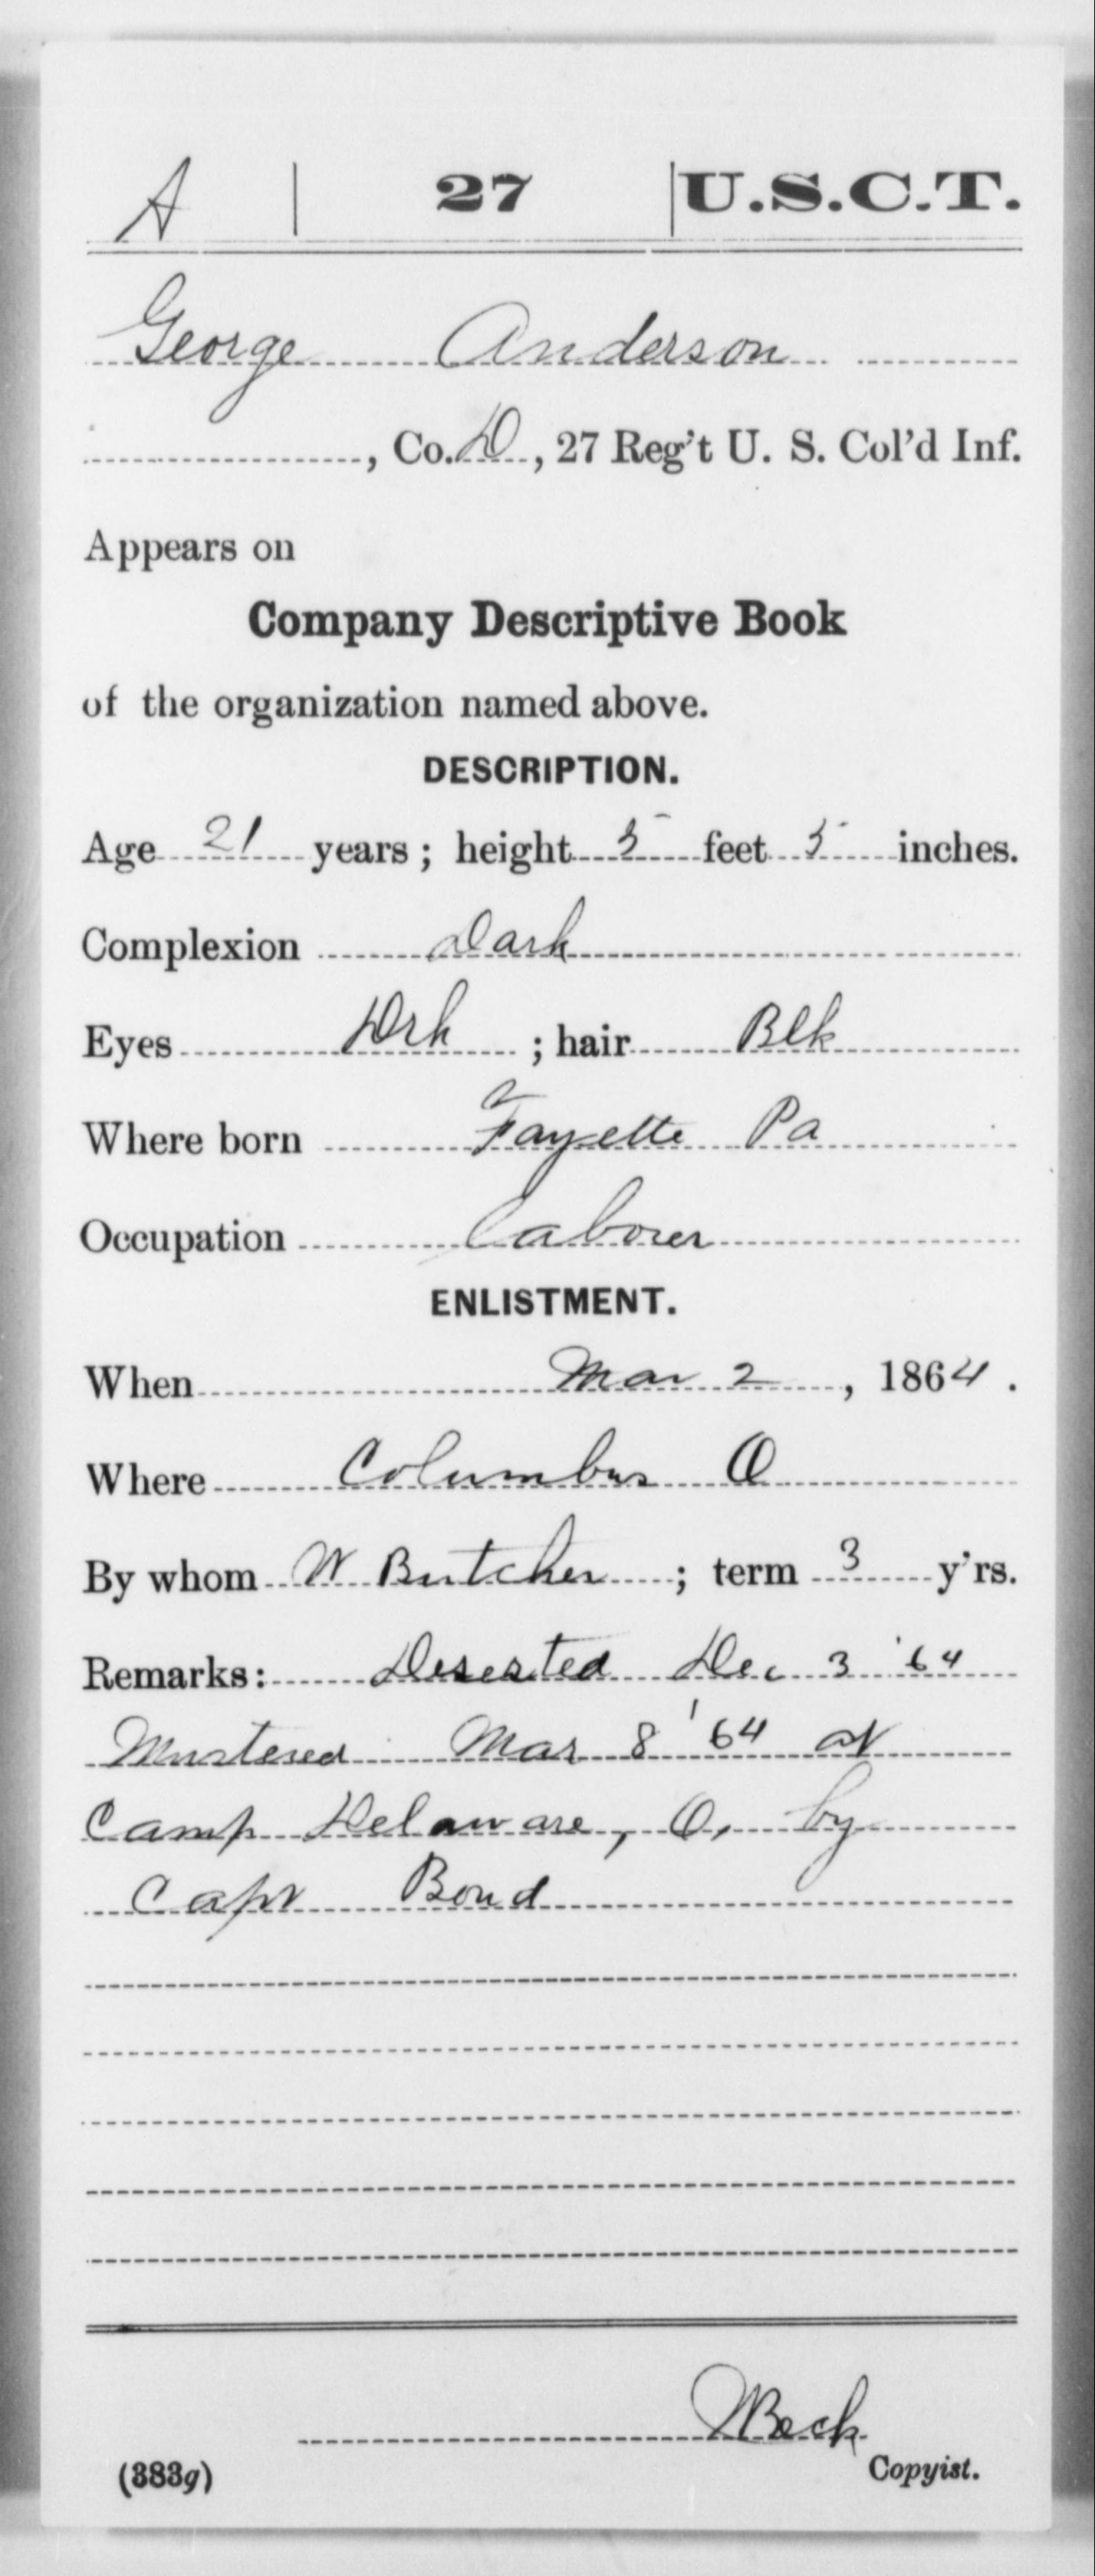 A | 27 | U.S.C.T.
George Anderson
, Co. D, 27 Reg't U. S. Col'd Inf.
Appears on
Company Descriptive Book
of the organization named above.
DESCRIPTION.
Age 21 years; height 5 feet 5 inches.
Complexion Dark
Eyes Drk; hair Blk
Where born Fayette Pa
Occupation Laborer
ENLISTMENT.
When Mar 2, 1864.
Where Columbus O
By whom W Butcher; term 3 y'rs.
Remarks: Deserted Dec 3 '64
Mustered Mar 8 '64 at
Camp Delaware, O, by
Capt Bond
Beck
(383g) Copyist.